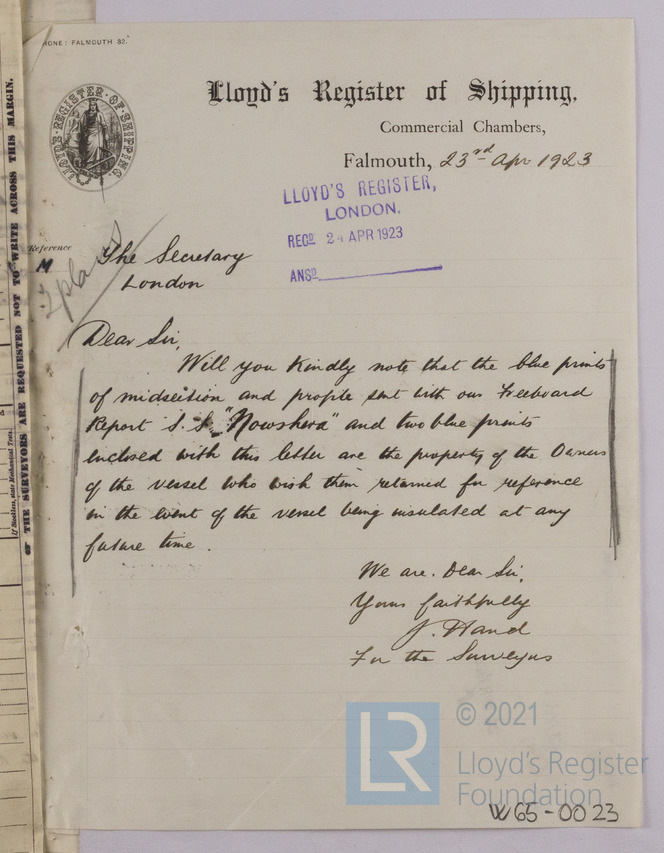 HONE: FALMOUTH 82.
LLOYD'S REGISTER OF SHIPPING.
Lloyd's Register of Shipping,
Commercial Chambers,
Falmouth, 23rd Apr 1923
LLOYD'S REGISTER,
LONDON.
RECD 24 APR 1923
ANSD
Reference
M
2 plans
The Secretary
London
Dear Sir,
Will you kindly note that the blue prints
of midsection and profile sent with our Freeboard
Report S.S. "Nowshera" and two blue prints
enclosed with this letter are the property of the Owners
of the vessel who wish them returned for reference
in the event of the vessel being insulated at any
future time.
We are. Dear Sir,
Yours faithfully
J. Hand
For the Surveyors
THE SURVEYORS ARE REQUESTED NOT TO WRITE ACROSS THIS MARGIN.
LR
© 2021
Lloyd's Register
Foundation
W65-0023